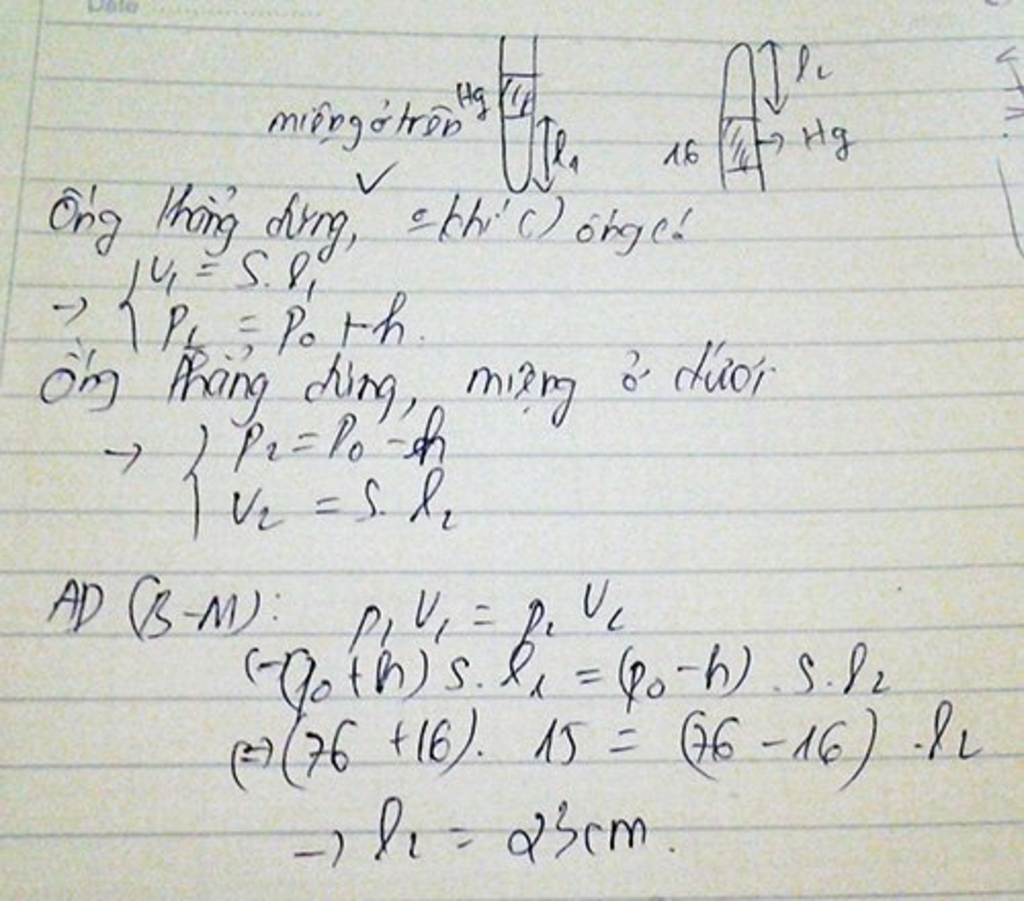 Date
Hg
l₂
miệng ở trên
l₁
16
Hg
Ống thẳng đứng, khí ( ) ống
→ { V₁ = S. l₁
P₁ = P₀ + h.
Ống thẳng đứng, miệng ở dưới
→ { P₂ = P₀ - h
V₂ = S. l₂
AD (B-M): P₁ V₁ = P₂ V₂
(P₀ + h) S. l₁ = (P₀ - h) . S. l₂
(=) (76 + 16). 15 = (76 - 16) . l₂
→ l₂ = 23cm.